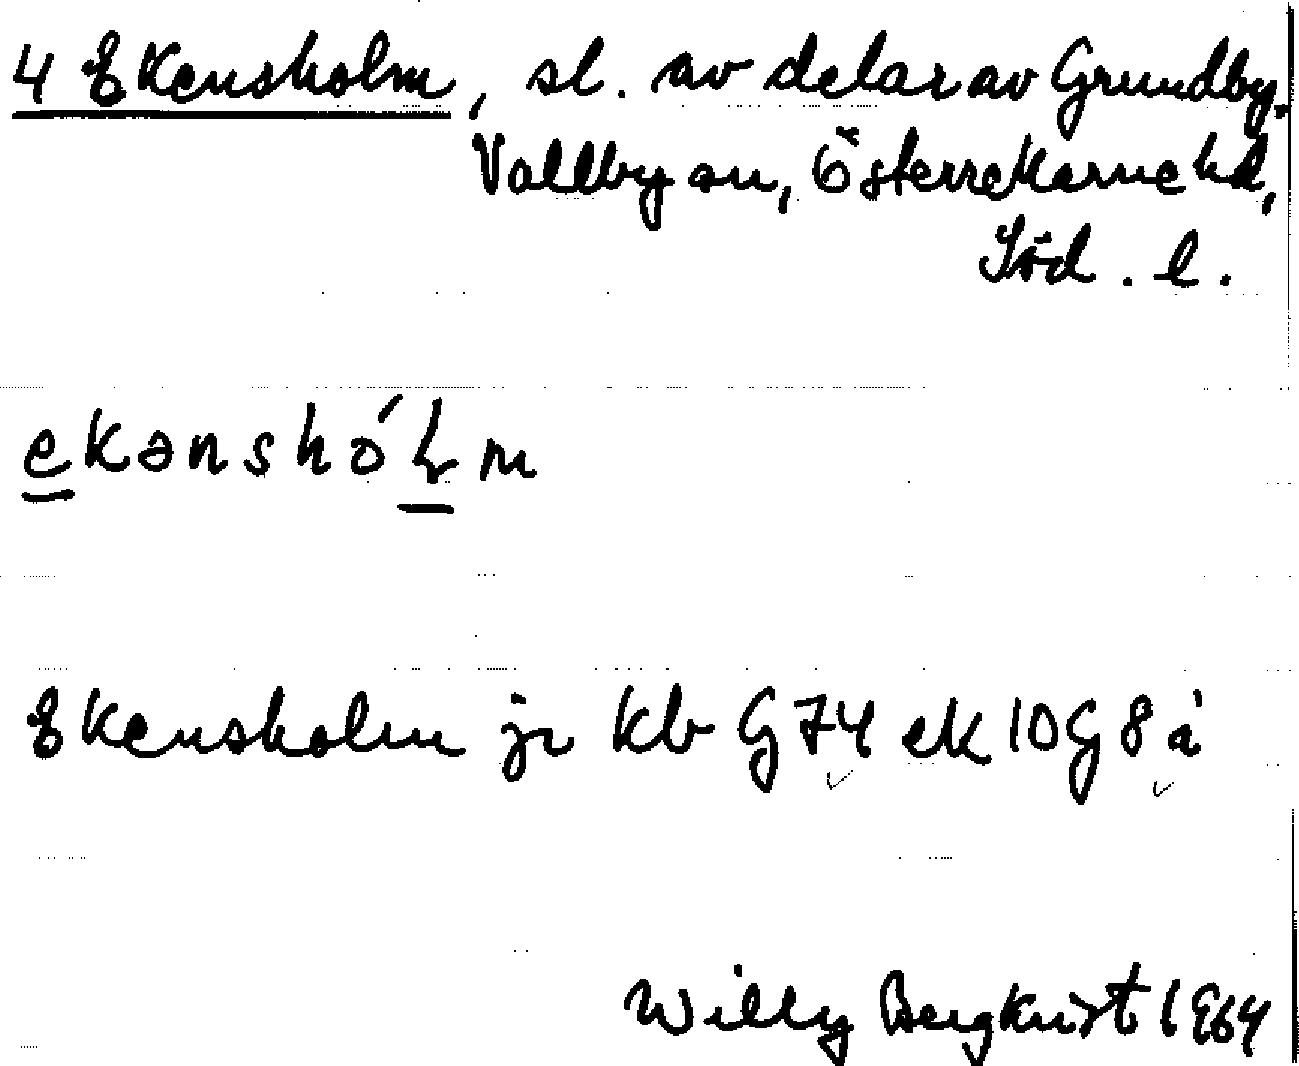 4 Ekensholm, sl. av delar av Grundby.
Vallby sn, Österrekarne hd,
Söd. l.
ekənshólm
Ekensholm jr kb G74 ek 10G8a
Willy Bergkvist 1964